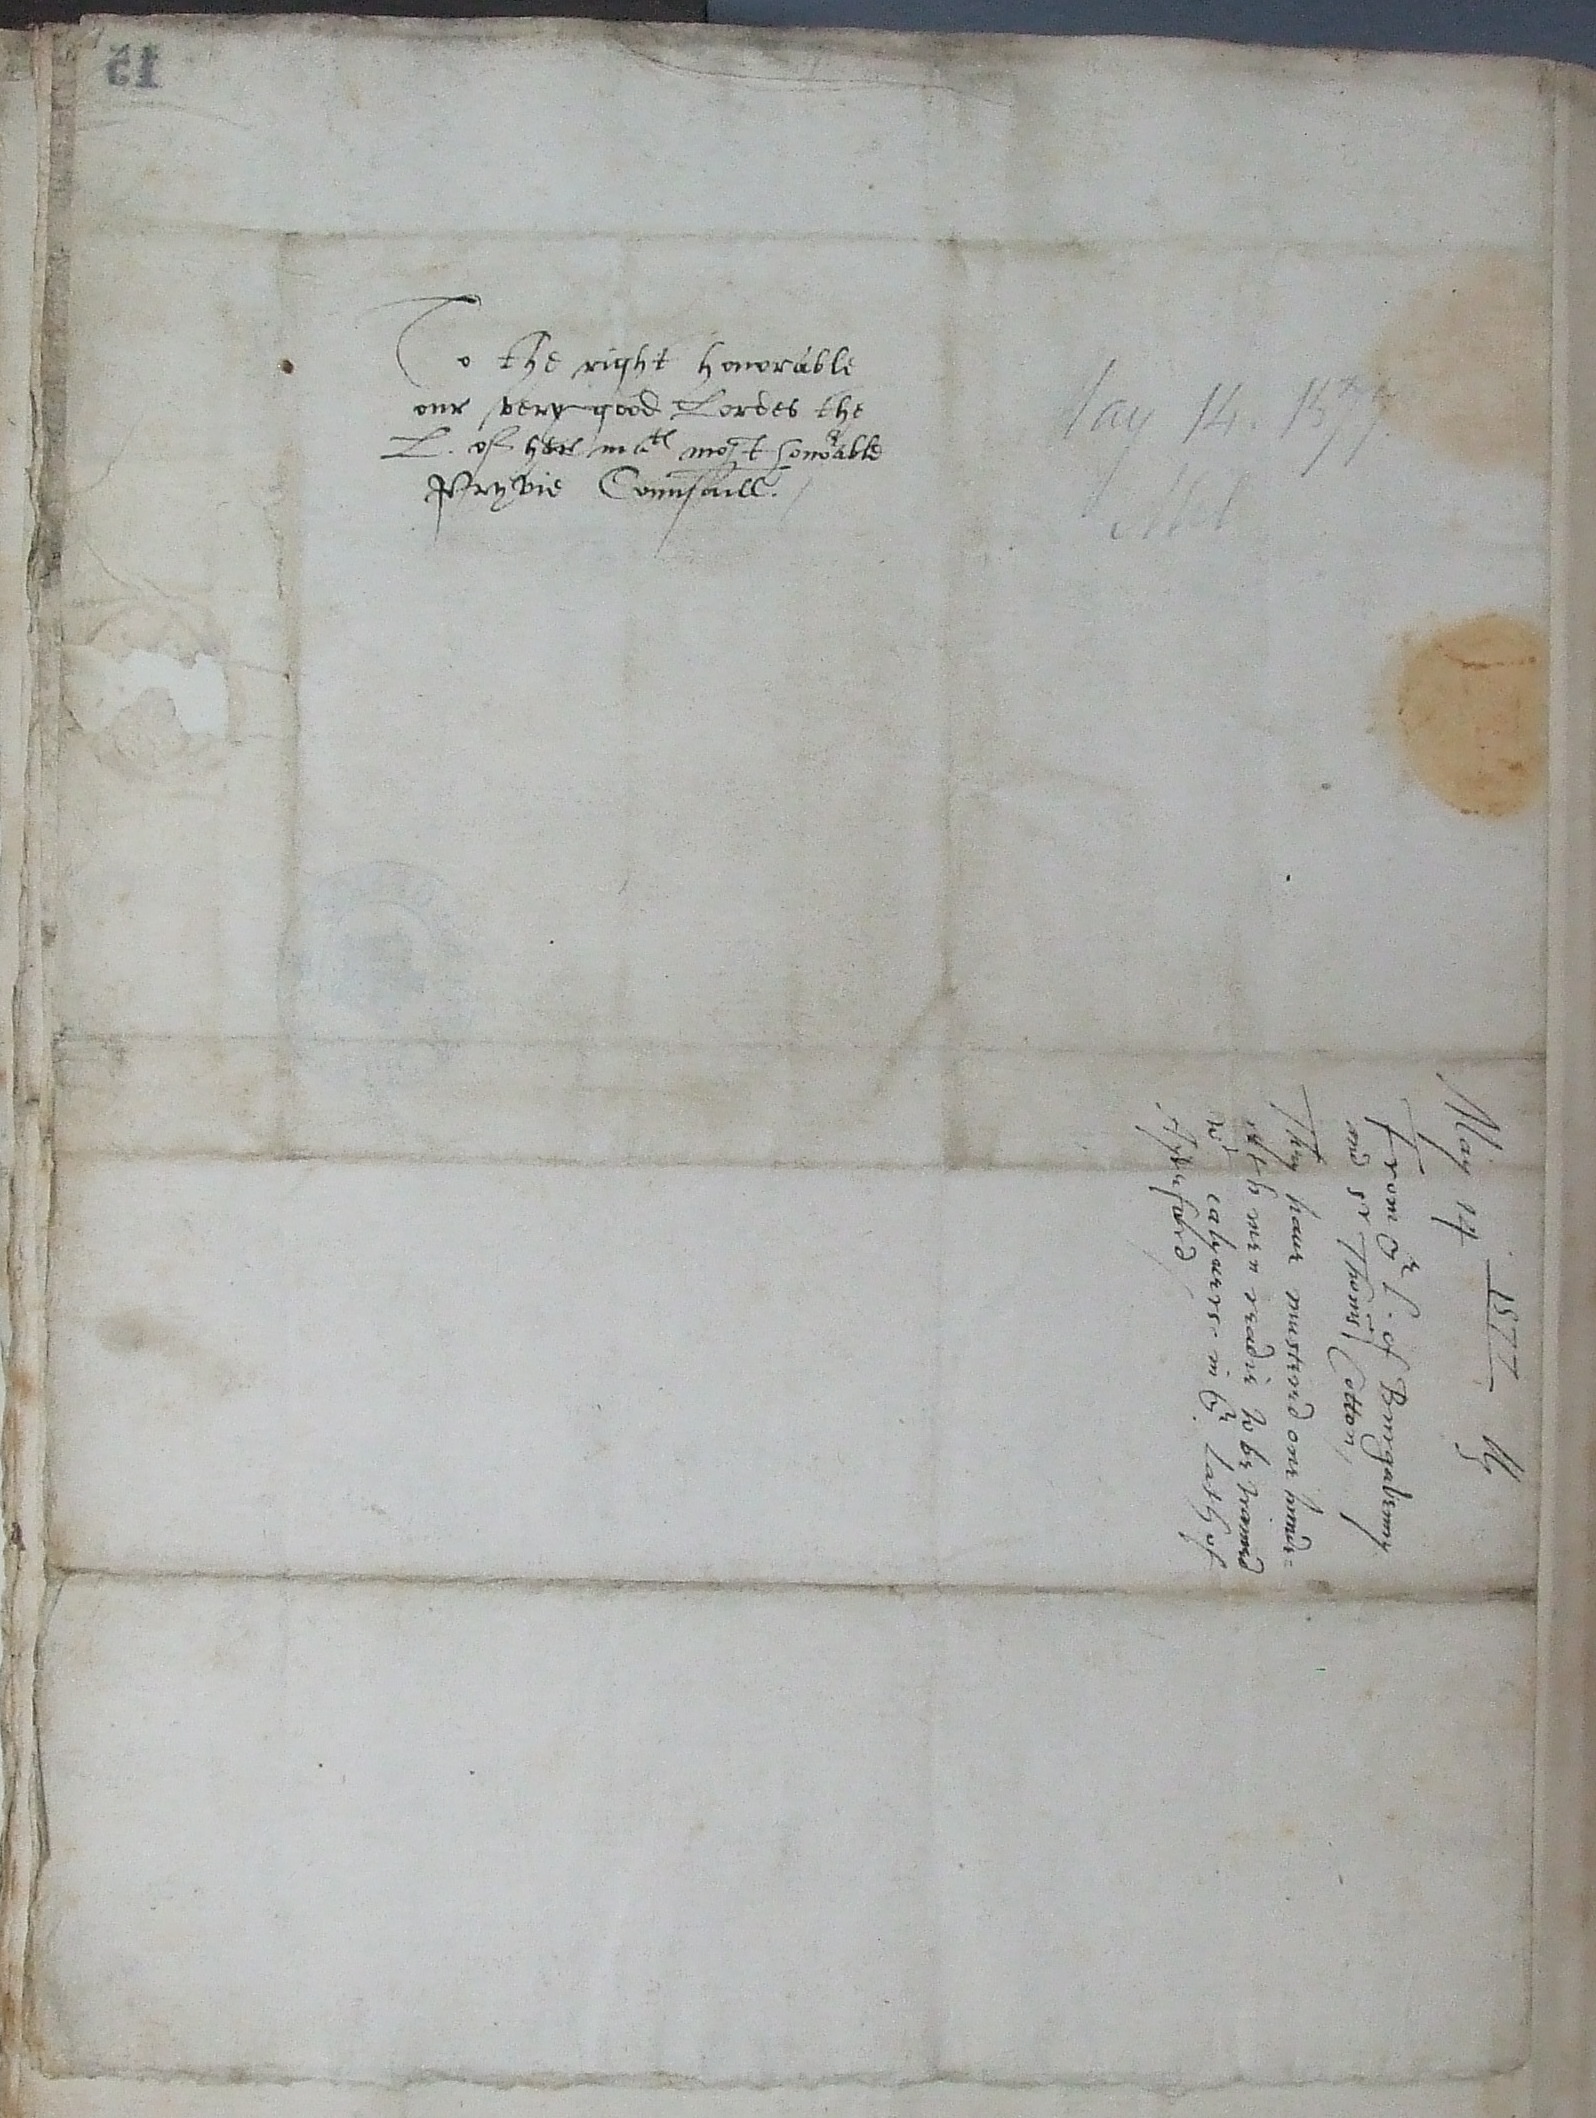 To the right honorable
our very good Lordes the
L. of her ma^tes most honorable
Pryvie Counsaill.
May 14. 1577.
May 14 1577
From ye L. of Burgaveny
and sr Thomas Cotton
They haue mustred one hundr=
eth men readie to be trained
wt calyvers in ye Lath of
Aylesford
15